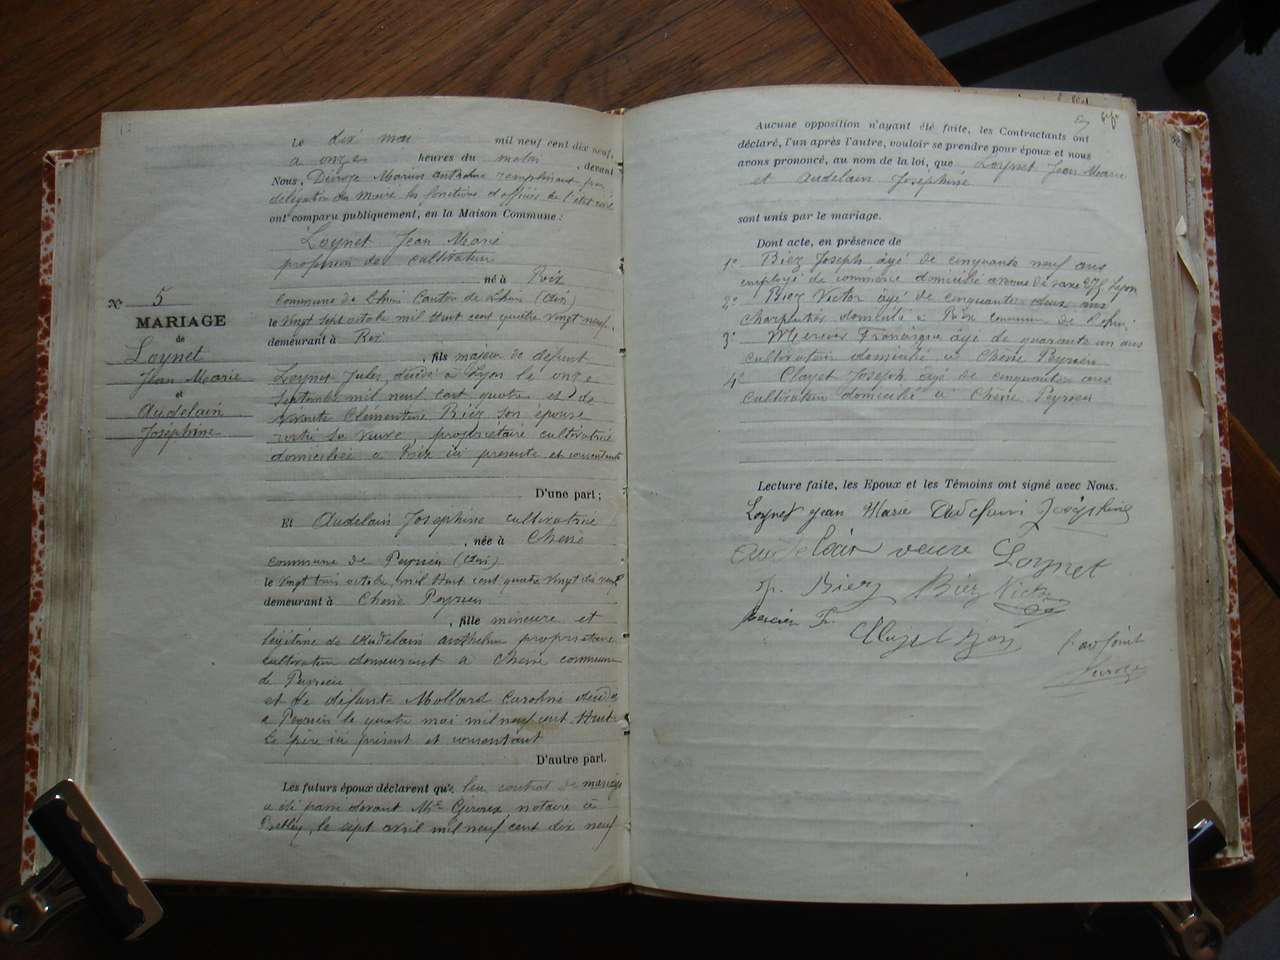 Le dix mai mil neuf cent dix neuf,
à onze heures du matin, devant
Nous, Marius remplissant par
délégation du Maire les fonctions d'officier de l'état civil
ont comparu publiquement, en la Maison Commune :
Loynet Jean Marie
profession de cultivateur
né à Rix
commune de Lhuis Canton de Lhuis (Ain)
le vingt sept octobre mil huit cent quatre vingt neuf
demeurant à Rix
, fils majeur de défunt
Loynet Jules, décédé à Lyon le onze
Septembre mil neuf cent quatre et de
Clémentine Biez son épouse
sa veuve, propriétaire cultivatrice
domiciliée à Rix ici présente et consentante
D'une part ;
Et Audelain Joséphine cultivatrice
, née à
commune de Peyrieu (Ain)
le vingt trois octobre mil huit cent quatre vingt dix neuf
demeurant à Peyrieu
, fille mineure et
légitime de Audelain Anthelme propriétaire
cultivateur demeurant à commune
de Peyrieu
et de défunte Mollard Caroline décédée
à Peyrieu le quatre mai mil neuf cent huit
le père ici présent et consentant
D'autre part.
Les futurs époux déclarent que leur contrat de mariage
a été passé devant Me notaire à
le sept avril mil neuf cent dix neuf
N° 5
MARIAGE
de
Loynet
Jean Marie
et
Audelain
Joséphine
Aucune opposition n'ayant été faite, les Contractants ont
déclaré, l'un après l'autre, vouloir se prendre pour époux et nous
avons prononcé, au nom de la loi, que Loynet Jean Marie
et Audelain Joséphine
sont unis par le mariage.
Dont acte, en présence de
1° Biez Joseph âgé de cinquante neuf ans
employé de commerce domicilié avenue de Saxe Lyon
2° Biez Victor âgé de cinquante deux ans
Charpentier domicilié à Rix commune de
3° Mercier François âgé de quarante un ans
cultivateur domicilié à Peyrieu
4° Clayet Joseph âgé de cinquante ans
Cultivateur domicilié à Peyrieu
Lecture faite, les Epoux et les Témoins ont signé avec Nous.
Loynet Jean Marie Audelain Joséphine
Audelain veuve Loynet
Biez Biez Victor
Mercier F.
L'adjoint